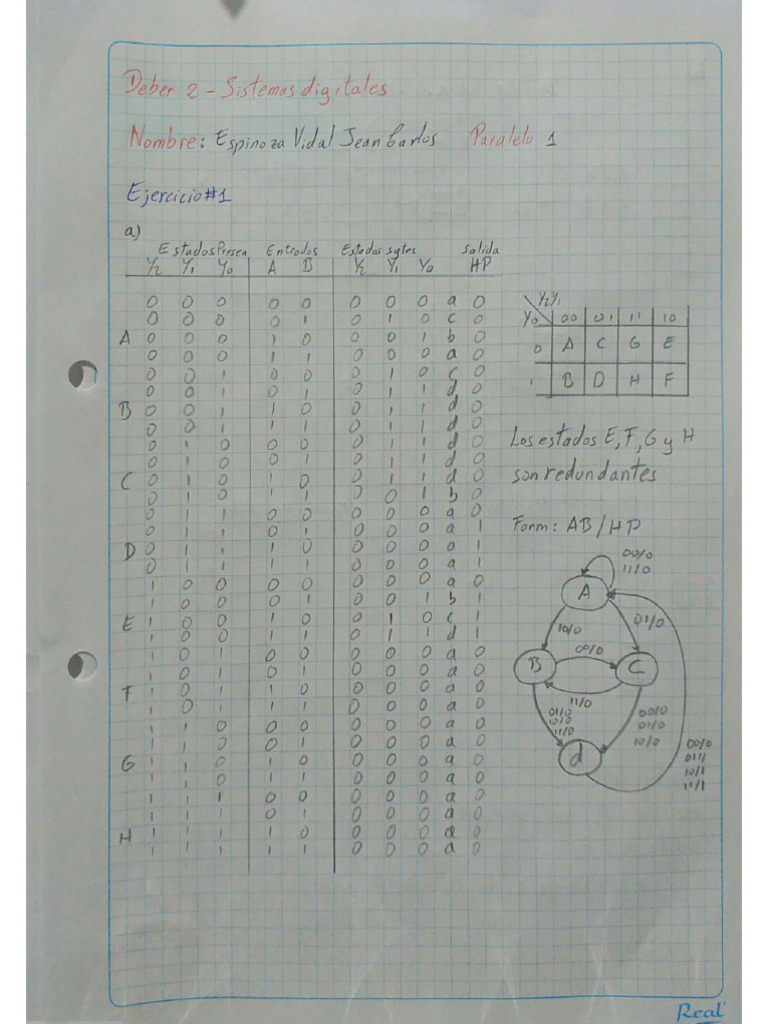 Deber 2 - Sistemas digitales
Nombre: Espinoza Vidal Jean Carlos Paralelo 1
Ejercicio #1
a)
Estados Presen Entradas Estados sgtes Salida
Y2 Y1 Y0 A B Y2 Y1 Y0 HP
0 0 0 0 0 0 0 0 a 0
0 0 0 0 1 0 1 0 c 0
A 0 0 0 1 0 0 0 1 b 0
0 0 0 1 1 0 0 0 a 0
0 0 1 0 0 0 1 0 c 0
0 0 1 0 1 0 1 1 d 0
B 0 0 1 1 0 0 1 1 d 0
0 0 1 1 1 0 1 1 d 0
0 1 0 0 0 0 1 1 d 0
0 1 0 0 1 0 1 1 d 0
C 0 1 0 1 0 0 1 1 d 0
0 1 0 1 1 0 0 1 b 0
0 1 1 0 0 0 0 0 a 0
0 1 1 0 1 0 0 0 a 1
D 0 1 1 1 0 0 0 0 a 1
0 1 1 1 1 0 0 0 a 1
1 0 0 0 0 0 0 0 a 0
1 0 0 0 1 0 0 1 b 1
E 1 0 0 1 0 0 1 0 c 1
1 0 0 1 1 0 1 1 d 1
1 0 1 0 0 0 0 0 a 0
1 0 1 0 1 0 0 0 a 0
F 1 0 1 1 0 0 0 0 a 0
1 0 1 1 1 0 0 0 a 0
1 1 0 0 0 0 0 0 a 0
1 1 0 0 1 0 0 0 a 0
G 1 1 0 1 0 0 0 0 a 0
1 1 0 1 1 0 0 0 a 0
1 1 1 0 0 0 0 0 a 0
1 1 1 0 1 0 0 0 a 0
H 1 1 1 1 0 0 0 0 a 0
1 1 1 1 1 0 0 0 a 0
Y2Y1
Y0 00 01 11 10
0 A C G E
1 B D H F
Los estados E, F, G y H
son redundantes
Form: AB/HP
00/0
11/0
A
10/0 01/0
00/0
B C
11/0
01/0
10/0
11/0
00/0
01/0
10/0
d
00/0
01/1
10/1
11/1
Real